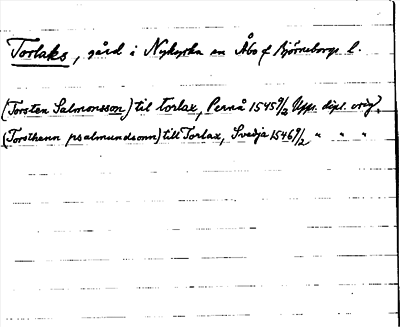 Torlaks, gård i Nykyrka sn Åbo o. Björneborgs l.
(Torsten Salmonsson) til torlax, Pernå 1545 9/2 Upps. dipl. orig.
(Torsthenn psalmundsonn) till Torlax, Svedja 1546 9/2 " " "